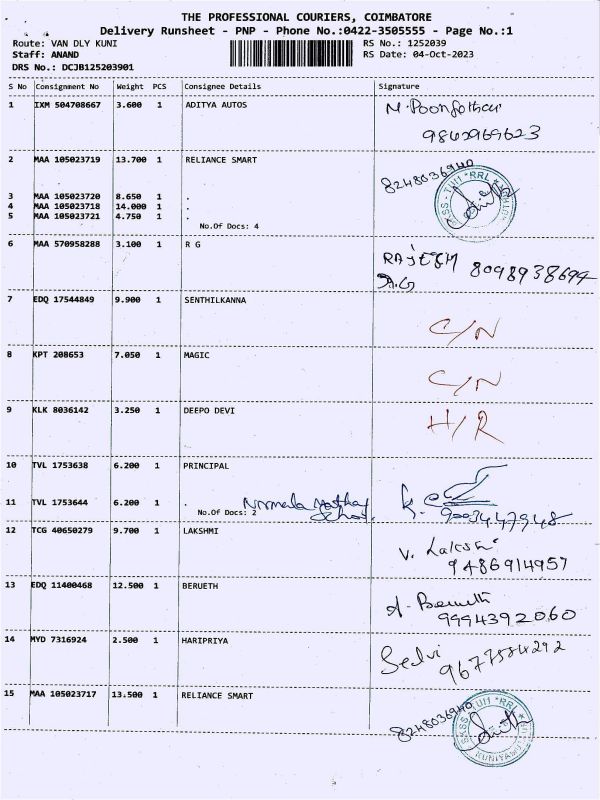 THE PROFESSIONAL COURIERS, COIMBATORE
Delivery Runsheet - PNP - Phone No.:0422-3505555 - Page No.:1
Route: VAN DLY KUNI RS No.: 1252039
Staff: ANAND RS Date: 04-Oct-2023
DRS No.: DCJB125203901
S No Consignment No Weight PCS Consignee Details Signature
1 IXM 504708667 3.600 1 ADITYA AUTOS M. Poongothai
9842969623
2 MAA 105023719 13.700 1 RELIANCE SMART 8248036940
3 MAA 105023720 8.650 1 .
4 MAA 105023718 14.000 1 .
5 MAA 105023721 4.750 1 .
No.Of Docs: 4
6 MAA 570958288 3.100 1 R G RAJESH 8098938694
R.G
7 EDQ 17544849 9.900 1 SENTHILKANNA
C/N
8 KPT 208653 7.050 1 MAGIC
C/N
9 KLK 8036142 3.250 1 DEEPO DEVI H/R
10 TVL 1753638 6.200 1 PRINCIPAL
11 TVL 1753644 6.200 1 . Nirmala Matha School K.
No.Of Docs: 2 9003447948
12 TCG 40650279 9.700 1 LAKSHMI V. Lakshi
9486914957
13 EDQ 11400468 12.500 1 BERUETH A. Berueth
9994392060
14 MYD 7316924 2.500 1 HARIPRIYA Selvi
9677584292
15 MAA 105023717 13.500 1 RELIANCE SMART
8248036940